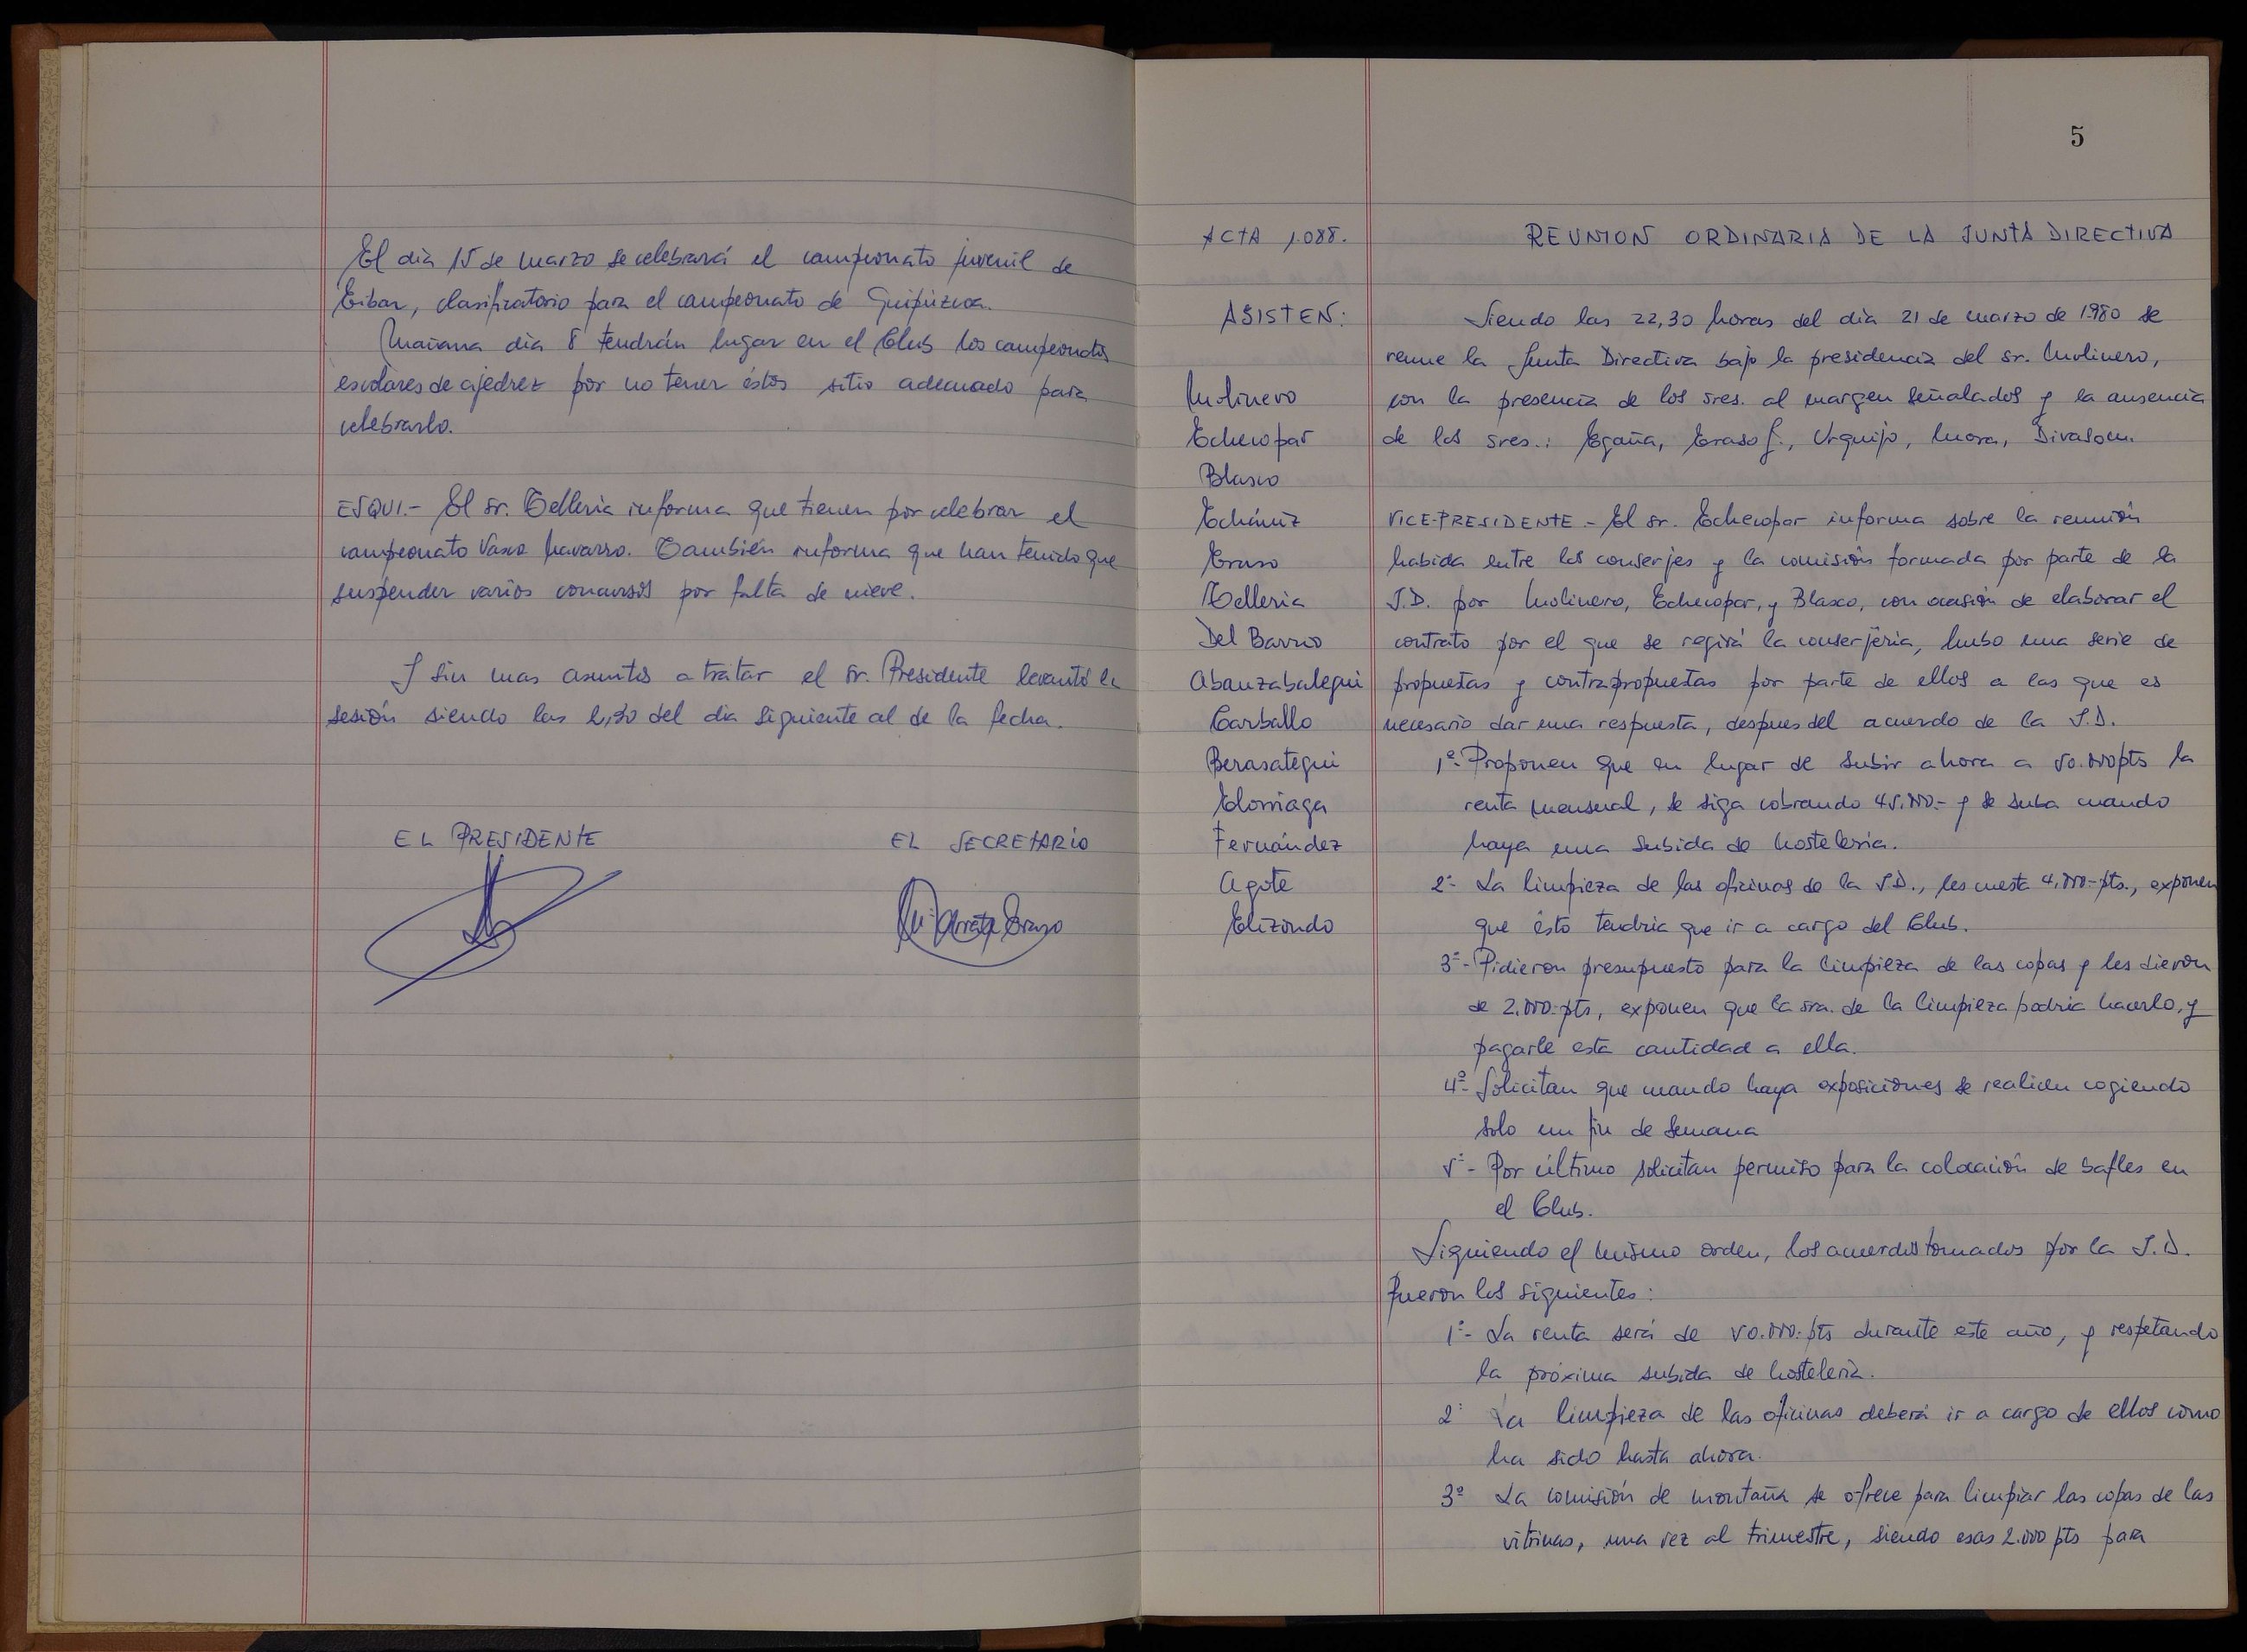 El dia 15 de marzo se celebrará el campeonato juvenil de
Eibar, clasificatorio para el campeonato de Guipúzcoa.
Mañana dia 8 tendrán lugar en el Club los campeonatos
escolares de ajedrez por no tener éstos sitio adecuado para
celebrarlo.
ESQUI.- El Sr. Telleria informa que tienen por celebrar el
campeonato Vasco Navarro. También informa que han tenido que
suspender varios concursos por falta de nieve.
Y sin mas asuntos a tratar el Sr. Presidente levantó la
sesión siendo las 1,30 del dia siguiente al de la fecha.
EL PRESIDENTE
EL SECRETARIO
5
ACTA 1.088.
REUNION ORDINARIA DE LA JUNTA DIRECTIVA
ASISTEN:
Molinero
Echecopar
Blasco
Echániz
Eraso
Telleria
Del Barrio
Abanzabalegui
Carballo
Berasategui
Elorriaga
Fernández
Agote
Elizondo
Siendo las 22,30 horas del dia 21 de marzo de 1.980 se
reune la Junta Directiva bajo la presidencia del sr. Molinero,
con la presencia de los sres. al margen señalados y la ausencia
de los sres.: Egaña, Eraso J., Urquijo, Mora, Divasson.
VICE-PRESIDENTE.- El sr. Echecopar informa sobre la reunión
habida entre los conserjes y la comisión formada por parte de la
J.D. por Molinero, Echecopar, y Blasco, con ocasión de elaborar el
contrato por el que se regirá la conserjeria, hubo una serie de
propuestas y contrapropuestas por parte de ellos a las que es
necesario dar una respuesta, despues del acuerdo de la J.D.
1º- Proponen que en lugar de subir ahora a 50.000 pts la
renta mensual, se siga cobrando 45.000.- y se suba cuando
haya una subida de hosteleria.
2º- La limpieza de las oficinas de la J.D., les cuesta 4.000.-pts., exponen
que ésto tendria que ir a cargo del Club.
3º- Pidieron presupuesto para la limpieza de las copas y les dieron
de 2.000.-pts, exponen que la sra. de la limpieza podria hacerlo, y
pagarle esta cantidad a ella.
4º- Solicitan que cuando haya exposiciones se realicen cogiendo
solo un fin de semana
5º- Por último solicitan permiso para la colocación de bafles en
el Club.
Siguiendo el mismo orden, los acuerdos tomados por la J.D.
fueron los siguientes:
1º- La renta será de 50.000.-pts durante este año, y respetando
la próxima subida de hosteleria.
2º La limpieza de las oficinas deberá ir a cargo de ellos como
ha sido hasta ahora.
3º La comisión de montaña se ofrece para limpiar las copas de las
vitrinas, una vez al trimestre, siendo esas 2.000 pts para